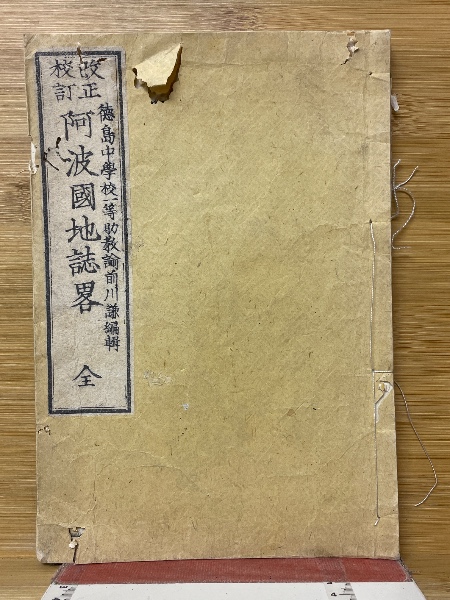 改正
校訂
徳島中學校一等助教諭前川謙編輯
阿波國地誌畧 全